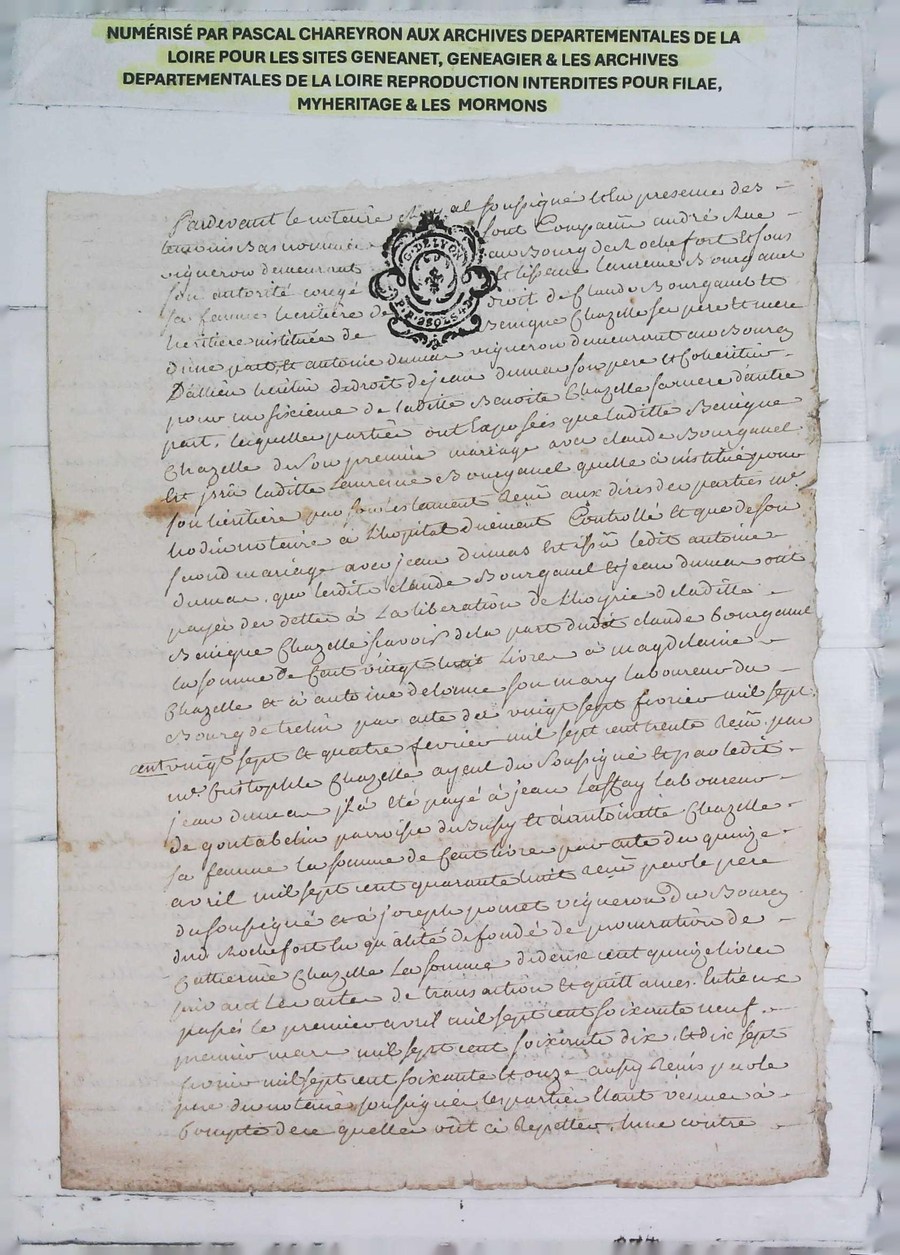 NUMÉRISÉ PAR PASCAL CHAREYRON AUX ARCHIVES DEPARTEMENTALES DE LA
LOIRE POUR LES SITES GENEANET, GENEAGIER & LES ARCHIVES
DEPARTEMENTALES DE LA LOIRE REPRODUCTION INTERDITES POUR FILAE,
MYHERITAGE & LES MORMONS
Pardevant le notaire Royal soussigné et en presence des
temoins bas nommés sont andré
vigneron demeurant au Bourg de Rochefort et sous
son autorité congé laurence Bourganel
sa femme heritiere de droit de claude Bourganel et
heritiere instituée de Benigne Chazelle ses pere et mere
d'une part, et antoine dumas vigneron demeurant au Bourg
heritier de droit de jean dumas son pere et coheritier
pour un sixieme de laditte Benoite Chazelle sa mere d'autre
part, lesquelles parties ont Exposées que laditte Benigne
Chazelle de son premier mariage avec claude Bourganel
Est laditte Laurence Bourganel quelle à instituée pour
son heritiere par son testament Reçu aux dires des parties me
notaire à Lhopital duement Controllé Et que de son
second mariage avec jean dumas Est issû ledit antoine
dumas, que lesdits claude Bourganel et jean dumas ont
payée des dettes à La liberation de Lhoyrie de laditte
Benigne Chazelle scavoir de la part dudit claude bourganel
la somme de Cent vingt huit Livres à magdelaine
Chazelle et à antoine delorme son mary laboureur du
Bourg de trelin par acte des vingt sept fevrier mil sept
cent vingt sept Et quatre fevrier mil sept cent trente Reçu par
me Cristophle Chazelle ayeul du soussigné Et par ledit
jean dumas il à été payé à jean Laffay laboureur
de gontabelin parroisse de Bussy et à antoinette Chazelle
sa femme la somme de Cent livres par acte du quinze
avril mil sept cent quarante huit Reçu par le pere
du soussigné et à joseph ponset vigneron du Bourg
dud. Rochefort En qualité de fondé de procuration de
Catherine Chazelle La somme de deux cent quinze livres
suivant Les actes de transaction Et quittances. Entieux
passés le premier avril mil sept cent soixante neuf
premier mars mil sept cent soixante dix, Et dix sept
fevrier mil sept cent soixante Et onze aussy Reçus par le
pere du notaire soussigné, les parties Etant venues à
Compte de ce quelles ont à Repetter, lune contre